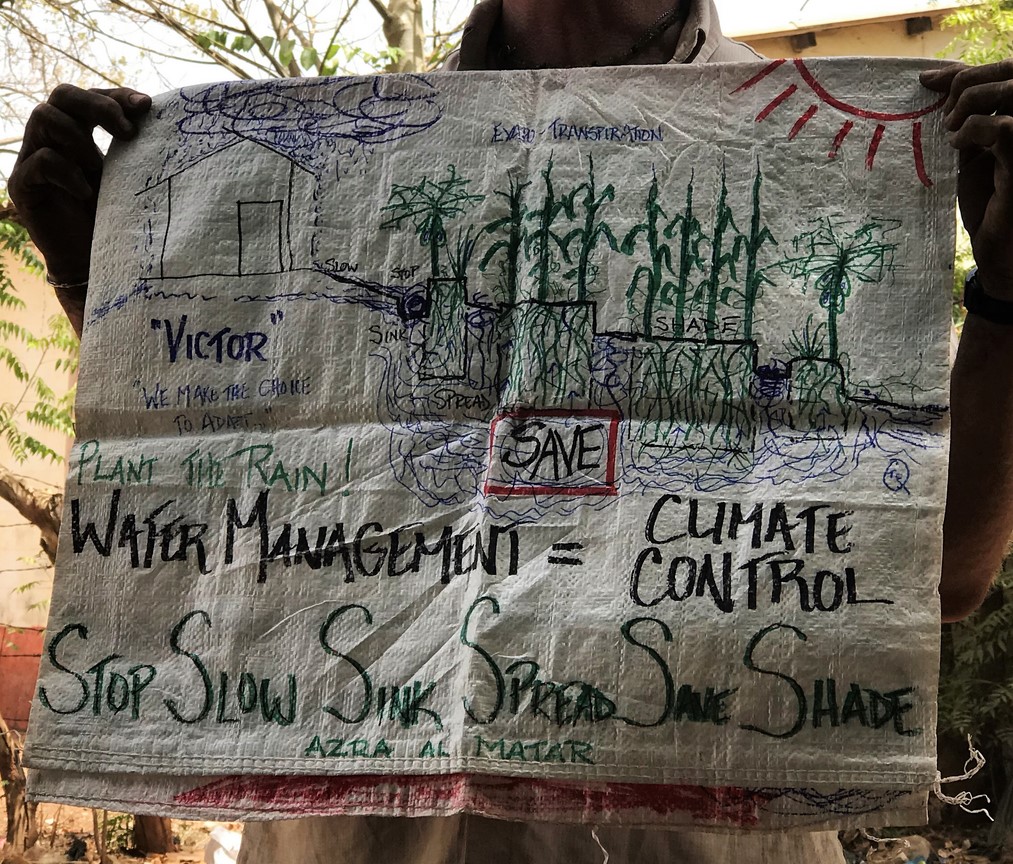 EVAPO-TRANSPIRATION
SLOW
STOP
SINK
SHADE
SPREAD
SAVE
"VICTOR"
"WE MAKE THE CHOICE
TO ADAPT..."
PLANT THE RAIN!
WATER MANAGEMENT = CLIMATE CONTROL
STOP SLOW SINK SPREAD SAVE SHADE
AZRA AL MATAR